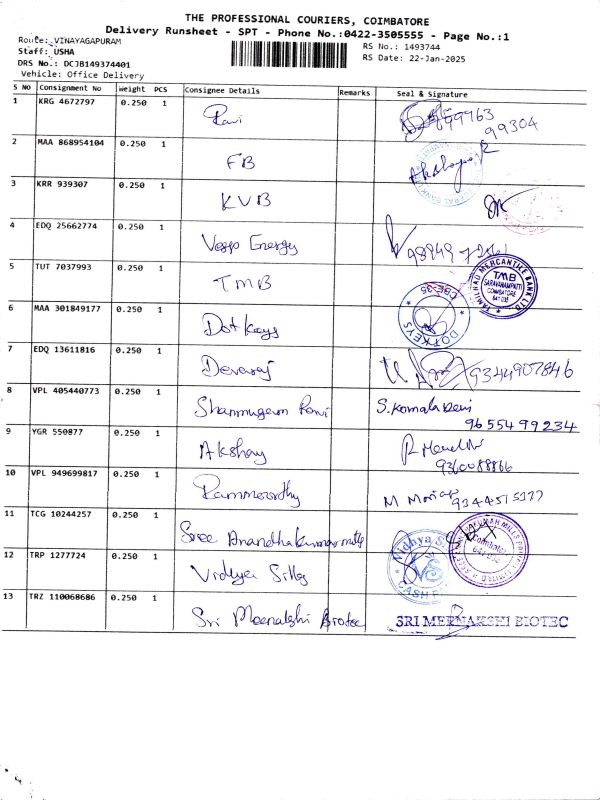 THE PROFESSIONAL COURIERS, COIMBATORE
Delivery Runsheet - SPT - Phone No.:0422-3505555 - Page No.:1
Route: VINAYAGAPURAM
RS No.: 1493744
Staff: USHA
RS Date: 22-Jan-2025
DRS No.: DCJB149374401
Vehicle: Office Delivery
S No Consignment No Weight PCS Consignee Details Remarks Seal & Signature
1 KRG 4672797 0.250 1 Ravi
99304
2 MAA 868954104 0.250 1 FB
3 KRR 939307 0.250 1 KVB
4 EDQ 25662774 0.250 1 Energy
5 TUT 7037993 0.250 1 TMB
TAMILNAD MERCANTILE BANK LTD
TMB
SARAVANAMPATTI
COIMBATORE
641 035
6 MAA 301849177 0.250 1 Dot Keys
DOTKEYS CBE-35
7 EDQ 13611816 0.250 1 Devaraj 9344907846
8 VPL 405440773 0.250 1 Shanmugam Ravi S. Komala Devi
9655499234
9 YGR 550877 0.250 1 Akshay
9360088866
10 VPL 949699817 0.250 1 Rammoorthy M
11 TCG 10244257 0.250 1 Sree Anandhakumar mills
Coimbatore
12 TRP 1277724 0.250 1 Vidhya Silks
Vidhya S
VS
CASH
13 TRZ 110068686 0.250 1 Sri Meenakshi Biotec SRI MEENAKSHI BIOTEC